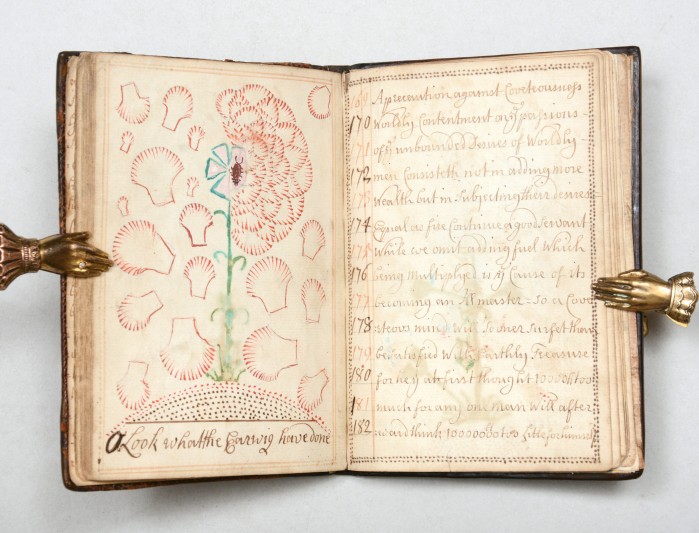 O Look what the Earwig have done
169 A precaution against Coveteousness
170 Worldly Contentment or passions -
171 off unbounded Desires of Worldly -
172 men Consisteth not in adding more
173 Wealth but in Subjecting their desires
174 Equal as fire Continue a good servant
175 While we omit adding fuel Which
176 being Multiplied is ye Cause of its
177 becoming an Ill master = So a Cove
178 teous mind will Sooner Surfet than
179 be satisfied With Earthly Treasure
180 for hey at first thought 10000l too
181 much for any one man Will after
182 ward think too little for himself